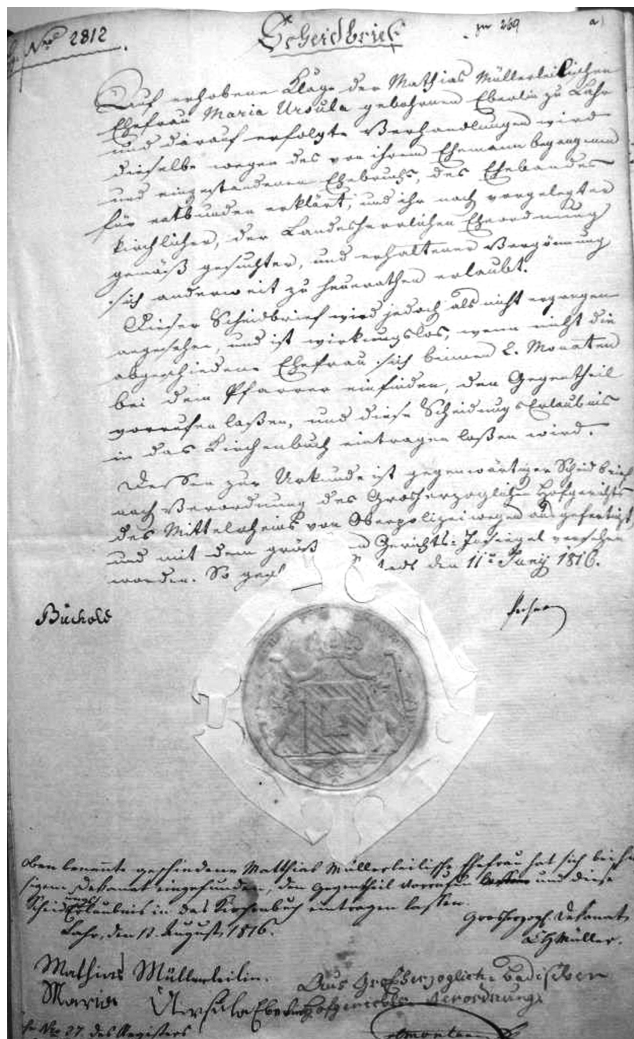 Nro 2812
Scheidbrief
269
a)
Auf erhobene Klage der Mathias Müllerleilischen
Ehefrau Maria Ursula gebohrnen Eberlin zu Lahr
und darauf erfolgte Verhandlungen wird
dieselbe wegen des von ihrem Ehemann begangenen
und eingestandenen Ehebruchs, des Ehebandes
für entbunden erklärt, und ihr nach vorgelegter
kirchlicher, der Landesherrlichen Eheordnung
gemäß gesuchter, und erhaltener Vergönnung
sich anderweit zu heurathen erlaubt.
Dieser Scheidbrief wird jedoch als nicht ergangen
angesehen, und ist wirkungslos, wenn nicht die
abgeschiedene Ehefrau sich binnen 2. Monaten
bei dem Pfarrer einfinden, den Gegentheil
vorrufen laßen, und diese Scheidungs Erlaubnis
in das Kirchenbuch eintragen laßen wird.
Dessen zur Urkunde ist gegenwärtiger Scheidbrief
nach Verordnung des Grosherzoglichen Hofgerichts
des Mittelrheins von Oberpolizeiwegen ausgefertigt
und mit dem größ Gerichts-Insiegel versehen
worden. So den 11n Junÿ 1816.
Büchold
Oben benannte geschiedene Matthias Müllerleilische Ehefrau hat sich bei hie
sigem Dekanat eingefunden, den Gegentheil vorrufen und diese
Scheidungs Erlaubnis in das Kirchenbuch eintragen lassen.
Lahr, den 11. August 1816.
Grosherzogl. Dekanat
Müller.
Mathias Müllerleilin.
Maria Ursula Eberlin
Aus Großherzoglich Badischen
Hofgerichts Verordnung
No 27. des Registers